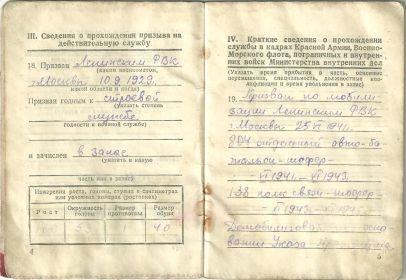 III. Сведения о прохождении призыва на
действительную службу
18. Призван Ленинским РВК
(каким военкоматом,
г. Москвы 10.9.1929
какой области и когда)
Призван годным к строевой
(указать степень
службе
годности к военной службе)
и зачислен в запас
(указать в какую
часть или в запас)
Измерения роста, головы, ступни в сантиметрах
или условных номерах (ростовках)
Рост Окружность головы Размер противогаза Размер обуви
1 40
4
IV. Краткие сведения о прохождении
службы в кадрах Красной Армии, Военно-
Морского флота, пограничных и внутрен-
них войск Министерства внутренних дел
(Указать время прибытия в часть, основные
перемещения, специальность, должностные
и время увольнения в запас)
19. Призван по мобили-
зации Ленинским РВК
г. Москвы 25.VI 1941.
804 отдельный авто-ба-
тальон-шофер-
- VI 1941 - VI 1943.
138 полк связи-шофер-
- VI 1943 -
Демобилизован на осно-
вании Указа
5